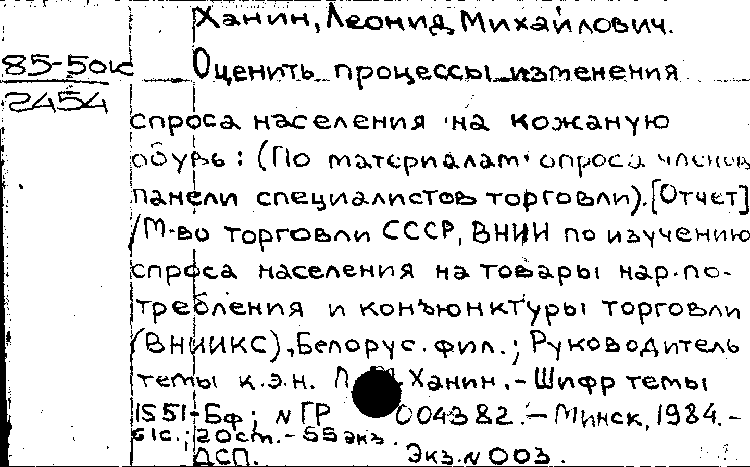 Ханин, Леонид Михайлович.
85-50к
2454
Оценить процессы изменения
спроса населения на кожаную
обувь: (По материалам опроса членов
панели специалистов торговли). [Отчет]
/М-во торговли СССР, ВНИИ по изучению
спроса населения на товары нар. по-
требления и конъюнктуры торговли
(ВНИИКС), Белорус. фил.; Руководитель
темы к.э.н. Л. М. Ханин. - Шифр темы
1551-Бф; № ГР 004382. - Минск, 1984. -
61с.; 20 см. - 55 экз.
ДСП. Экз. № 003.